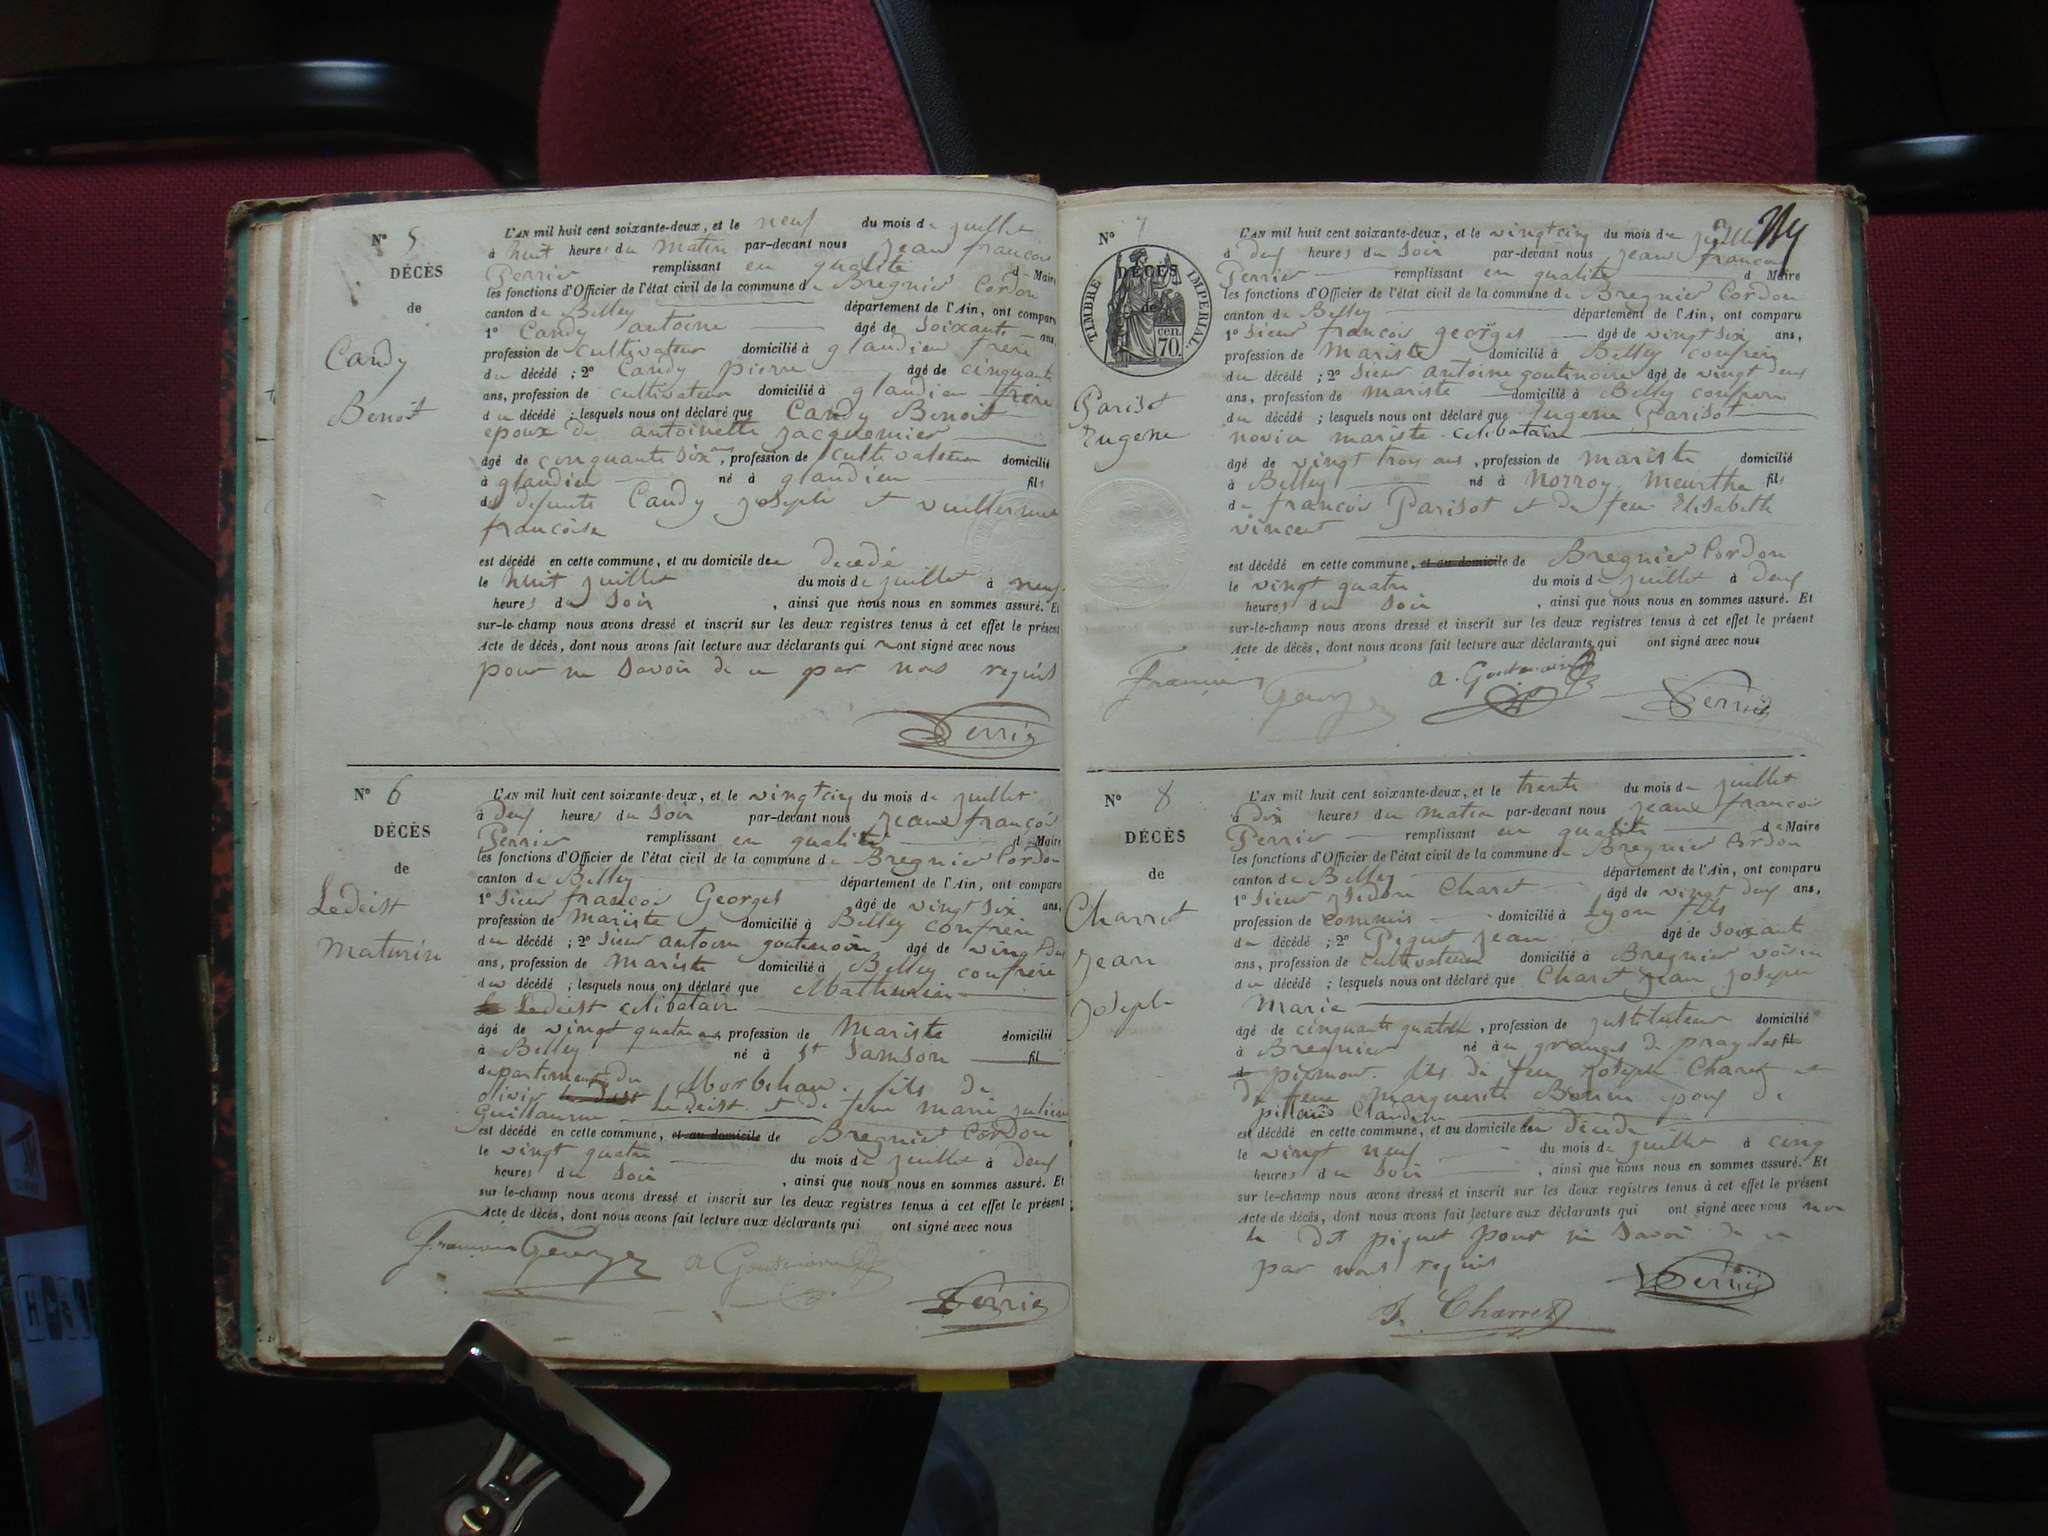 N° 5
DÉCÈS
de
Candy
Benoit
L'AN mil huit cent soixante-deux, et le neuf du mois de juillet
à huit heures du matin par-devant nous jean françois
Perrier remplissant en qualité de Maire
les fonctions d'Officier de l'état civil de la commune de Bregnier Cordon
canton de Belley département de l'Ain, ont comparu
1° Candy antoine âgé de soixante ans,
profession de cultivateur domicilié à glandieu frère
du décédé ; 2° Candy pierre âgé de cinquante
ans, profession de cultivateur domicilié à glandieu frère
du décédé ; lesquels nous ont déclaré que Candy Benoit
epoux de antoinette jacquemier
âgé de cinquante six ans, profession de cultivateur domicilié
à glandieu né à glandieu fils
de defunts Candy joseph et vuillerme
francoise
est décédé en cette commune, et au domicile de decédé
le huit juillet du mois de juillet à neuf
heures du soir , ainsi que nous nous en sommes assuré. Et
sur-le-champ nous avons dressé et inscrit sur les deux registres tenus à cet effet le présent
Acte de décès, dont nous avons fait lecture aux déclarants qui n'ont signé avec nous
pour ne savoir de ce par nous requis
Perrier
N° 6
DÉCÈS
de
Ledeist
Maturin
L'AN mil huit cent soixante-deux, et le vingt cinq du mois de juillet
à deux heures du soir par-devant nous jean françois
Perrier remplissant en qualité de Maire
les fonctions d'Officier de l'état civil de la commune de Bregnier Cordon
canton de Belley département de l'Ain, ont comparu
1° sieur francois Georges âgé de vingt six ans,
profession de Mariste domicilié à Belley confrère
du décédé ; 2° sieur antoine goutenoire âgé de vingt deux
ans, profession de mariste domicilié à Belley confrère
du décédé ; lesquels nous ont déclaré que Mathurin
Ledeist celibatair
âgé de vingt quatre ans, profession de Mariste domicilié
à Belley né à St Samson fil
departement du Morbihan. fils de
olivier Ledeist et de feue marie julien
Guillaume
est décédé en cette commune, et au domicile de Bregnier Cordon
le vingt quatre du mois de juillet à deux
heures du soir , ainsi que nous nous en sommes assuré. Et
sur-le-champ nous avons dressé et inscrit sur les deux registres tenus à cet effet le présent
Acte de décès, dont nous avons fait lecture aux déclarants qui ont signé avec nous
François George a Goutenoire
Perrier
N° 7
DÉCÈS
de
TIMBRE IMPERIAL
70 cen.
Parisot
Eugene
L'AN mil huit cent soixante-deux, et le vingt cinq du mois de juillet
à deux heures du soir par-devant nous jean francois
Perrier remplissant en qualité de Maire
les fonctions d'Officier de l'état civil de la commune de Bregnier Cordon
canton de Belley département de l'Ain, ont comparu
1° sieur francois georges âgé de vingt six ans,
profession de Mariste domicilié à Belley confrère
du décédé ; 2° sieur antoine goutenoire âgé de vingt deux
ans, profession de mariste domicilié à Belley confrere
du décédé ; lesquels nous ont déclaré que Eugene Parisot
novice mariste celibataire
âgé de vingt trois ans, profession de mariste domicilié
à Belley né à Norroy Meurthe fils
de francois Parisot et de feue Elisabeth
vincent
est décédé en cette commune, et au domicile de Bregnier Cordon
le vingt quatre du mois de juillet à deux
heures du soir , ainsi que nous nous en sommes assuré. Et
sur-le-champ nous avons dressé et inscrit sur les deux registres tenus à cet effet le présent
Acte de décès, dont nous avons fait lecture aux déclarants qui ont signé avec nous
François George a. Goutenoire Perrier
N° 8
DÉCÈS
de
Charret
jean
joseph
L'AN mil huit cent soixante-deux, et le trente du mois de juillet
à dix heures du matin par-devant nous jean francois
Perrier remplissant en qualité de Maire
les fonctions d'Officier de l'état civil de la commune de Bregnier Cordon
canton de Belley département de l'Ain, ont comparu
1° sieur Charet âgé de vingt deux ans,
profession de commis domicilié à Lyon fils
du décédé ; 2° Piquet jean âgé de soixante
ans, profession de cultivateur domicilié à Bregnier voisin
du décédé ; lesquels nous ont déclaré que Charet jean joseph
Marie
âgé de cinquante quatre, profession de justituteur domicilié
à Bregnier né à granges de pragelas fil
piémon. fils de feu joseph Charet et
de feue Marguerite epoux de
Claudine
est décédé en cette commune, et au domicile du décédé
le vingt neuf du mois de juillet à cinq
heures du soir , ainsi que nous nous en sommes assuré. Et
sur-le-champ nous avons dressé et inscrit sur les deux registres tenus à cet effet le présent
Acte de décès, dont nous avons fait lecture aux déclarants qui ont signé avec nous non
le dit piquet pour ne savoir de ce
par nous requis Perrier
J. Charret